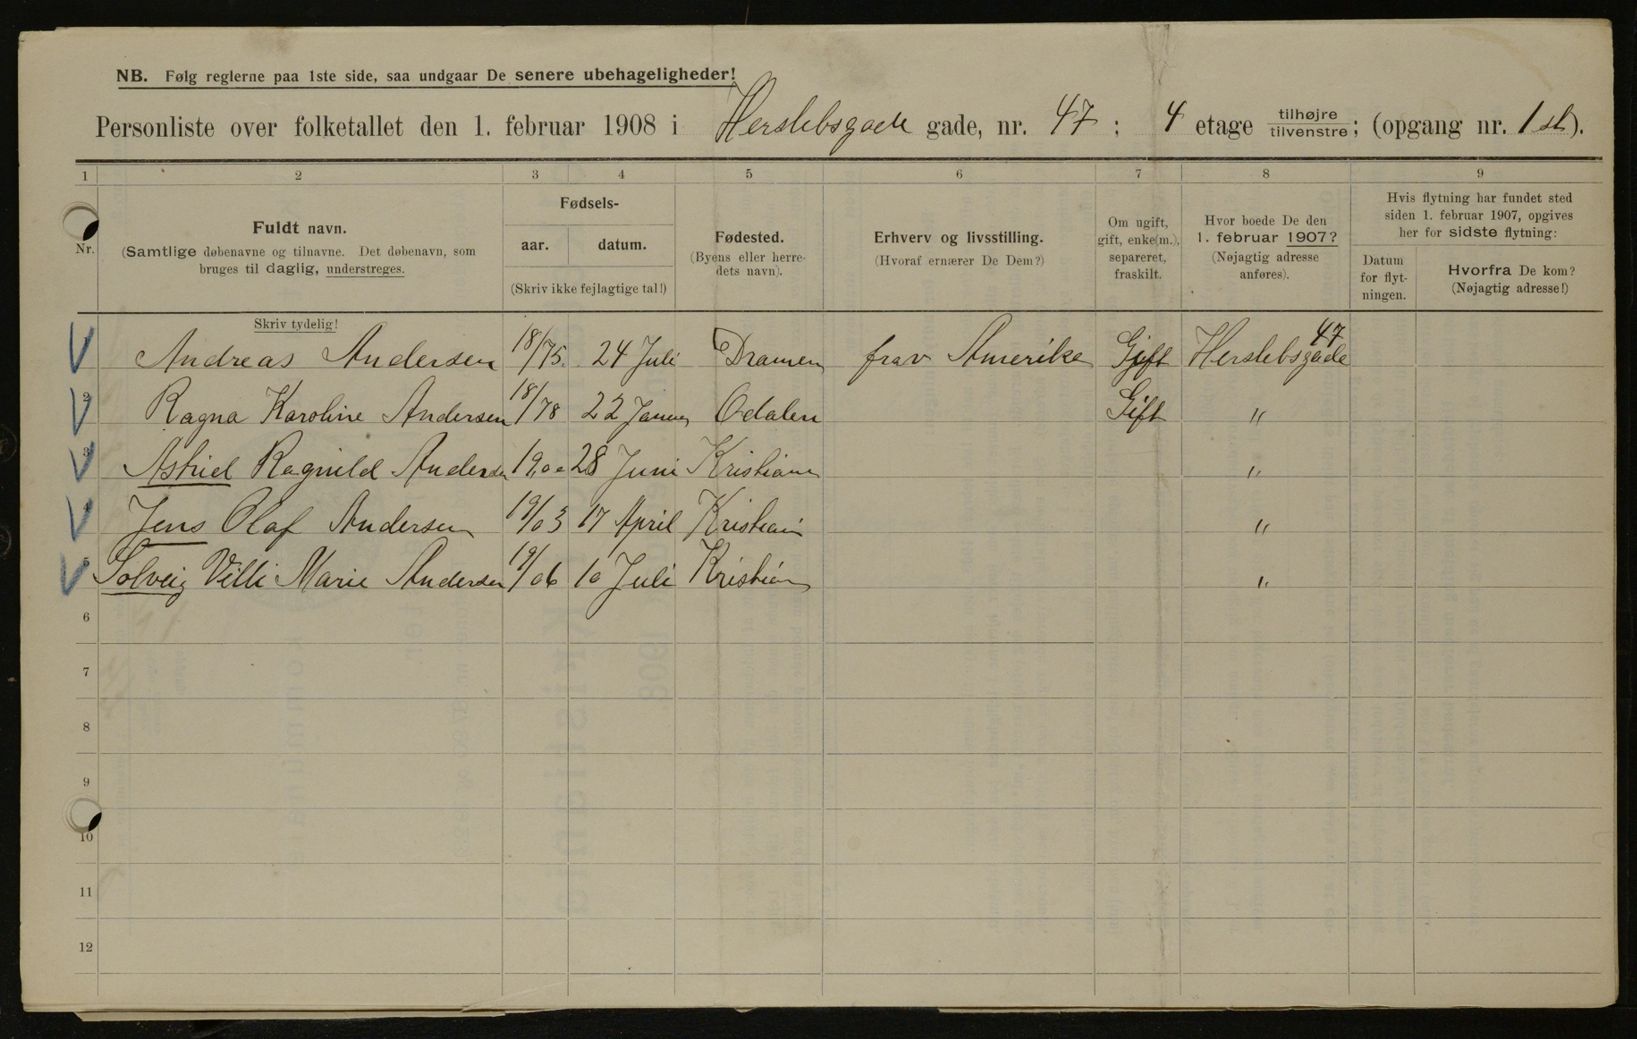 NB. Følg reglerne paa 1ste side, saa undgaar De senere ubehageligheder!
Personliste over folketallet den 1. februar 1908 i Herslebsgade gade, nr. 47 ; 4 etage tilhøjre tilvenstre ; (opgang nr. 1 st).
1 2 3 4 5 6 7 8 9
Nr. Fuldt navn. (Samtlige døbenavne og tilnavne. Det døbenavn, som bruges til daglig, understreges.
Fødsels- aar. datum. (Skriv ikke fejlagtige tal!)
Fødested. (Byens eller herredets navn).
Erhverv og livsstilling. (Hvoraf ernærer De Dem?)
Om ugift, gift, enke(m.), separeret, fraskilt.
Hvor boede De den 1. februar 1907? (Nøjagtig adresse anføres).
Hvis flytning har fundet sted siden 1. februar 1907, opgives her for sidste flytning:
Datum for flytningen.
Hvorfra De kom? (Nøjagtig adresse!)
Skriv tydelig!
Andreas Andersen 18/75. 24 Juli Dramen frav Amerike Gift Herslebsgade 47
2 Ragna Karoline Andersen 18/78 22 Januar Odalen Gift "
3 Astrid Ragnild Andersen 19,00 28 Juni Kristian "
4 Jens Olaf Andersen 19/03 17 April Kristian "
5 Solveig Villi Marie Andersen 19/06 10 Juli Kristian "
6
7
8
9
10
11
12